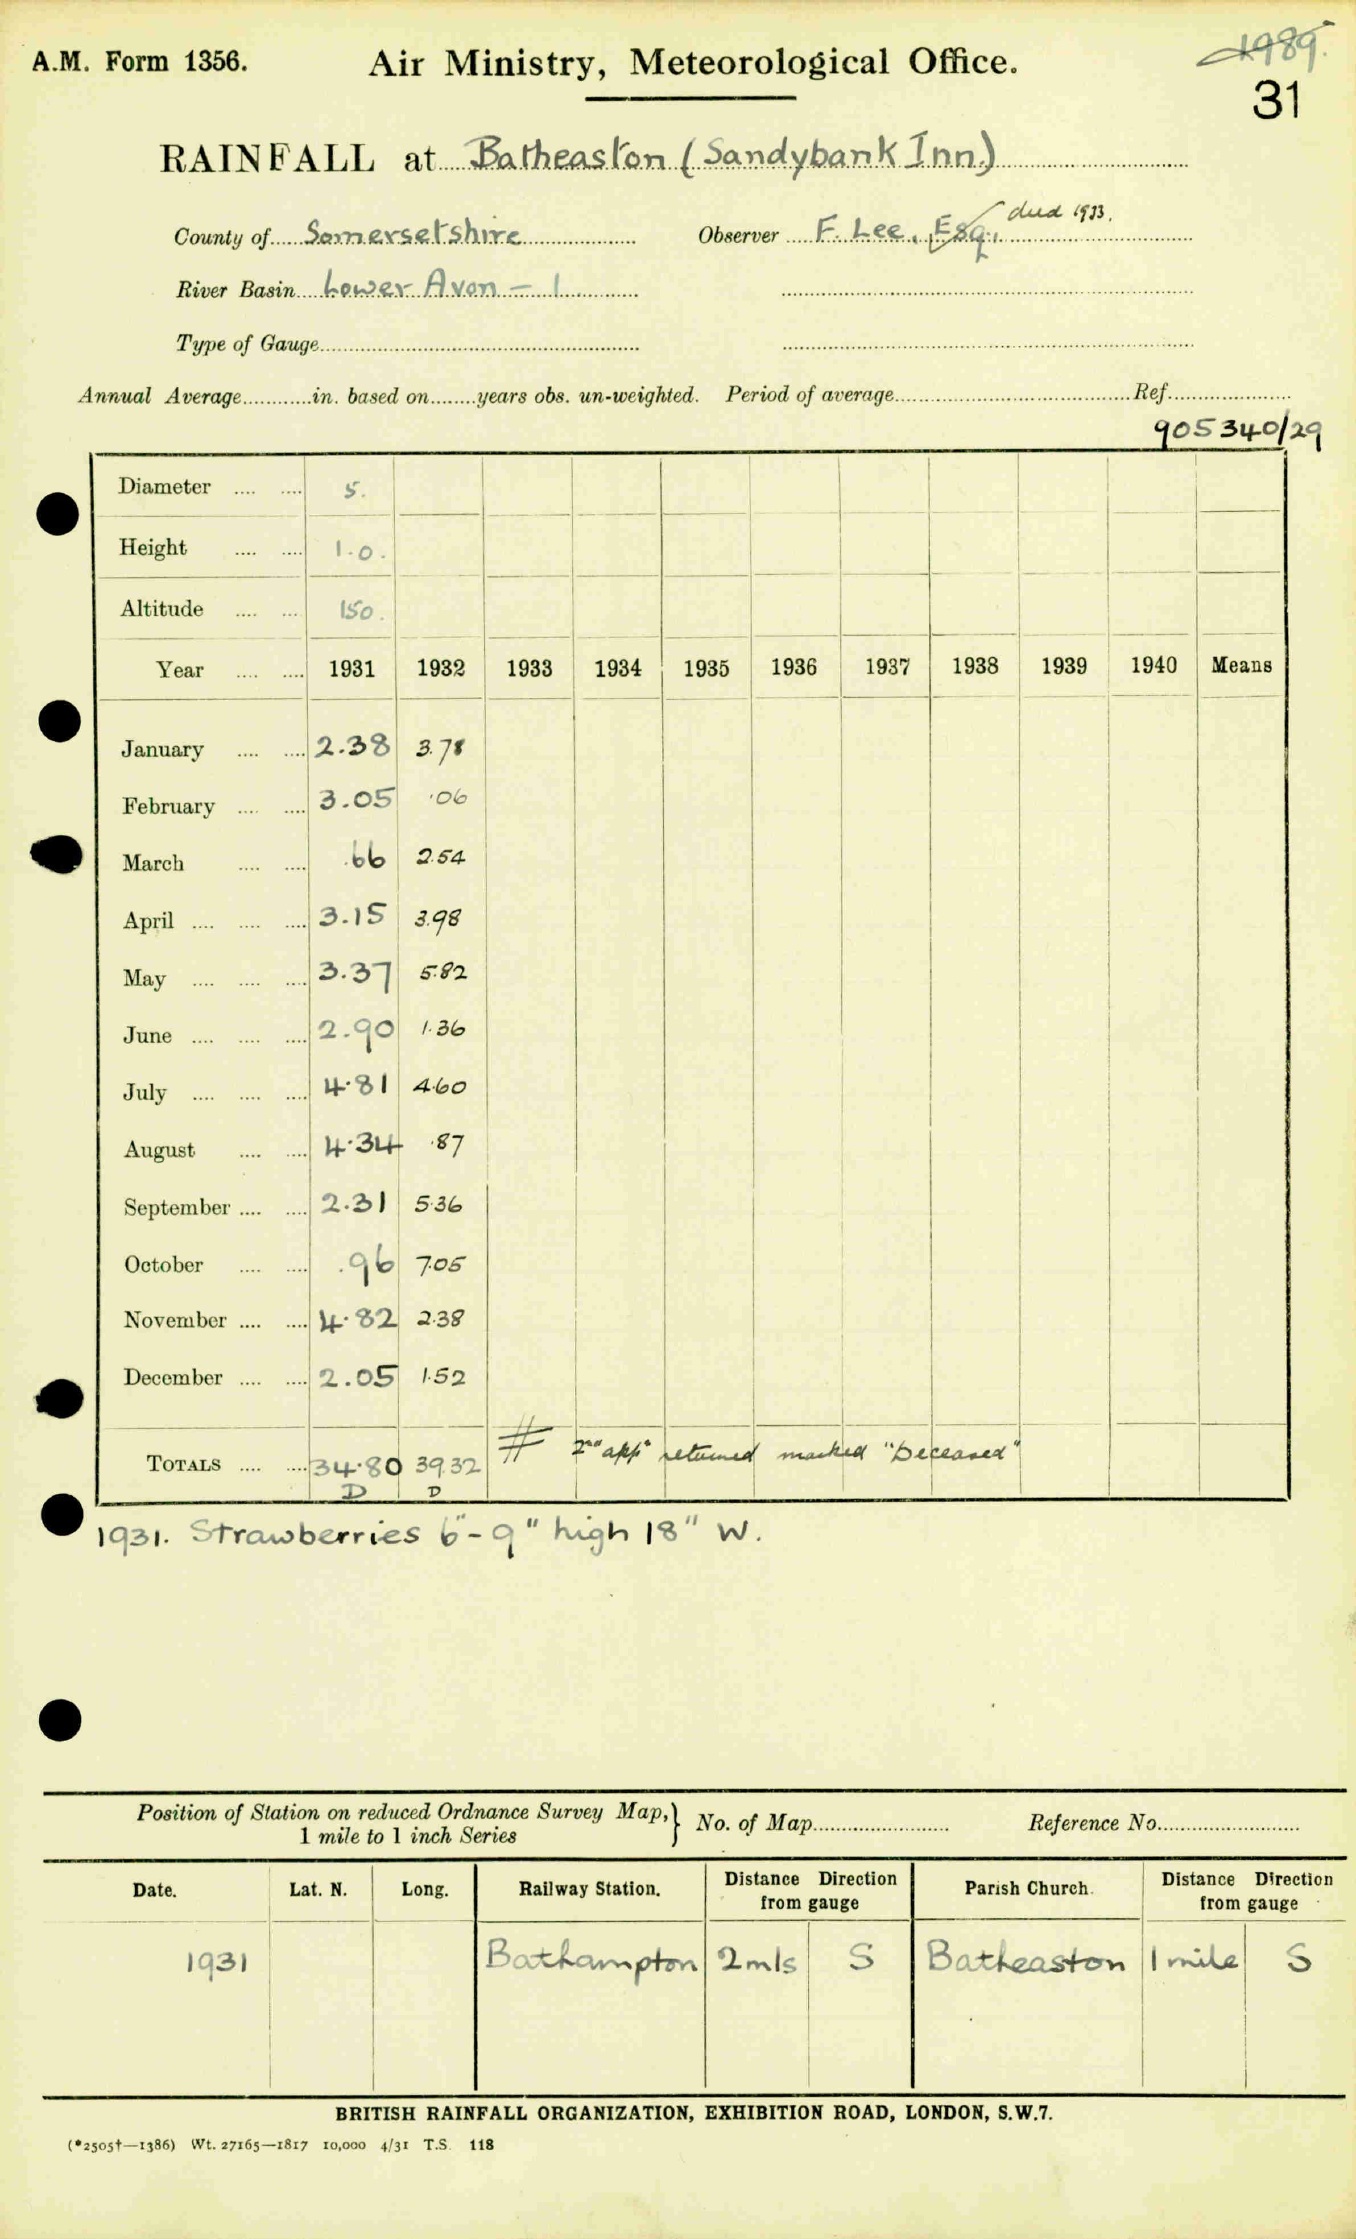 A.M. Form 1356.
Air Ministry, Meteorological Office.
1989.
31
RAINFALL at Batheaston (Sandybank Inn)
County of Somersetshire
Observer F. Lee, Esq. died 1933.
River Basin Lower Avon - 1
Type of Gauge
Annual Average in. based on years obs. un-weighted. Period of average Ref.
905340/29
Diameter 5.
Height 1.0.
Altitude 150.
Year 1931 1932 1933 1934 1935 1936 1937 1938 1939 1940 Means
January 2.38 3.78
February 3.05 .06
March .66 2.54
April 3.15 3.98
May 3.37 5.82
June 2.90 1.36
July 4.81 4.60
August 4.34 .87
September 2.31 5.36
October .96 7.05
November 4.82 2.38
December 2.05 1.52
TOTALS 34.80 39.32 # 2nd app returned marked "Deceased"
D D
1931. Strawberries 6"-9" high 18" W.
Position of Station on reduced Ordnance Survey Map,} No. of Map Reference No.
1 mile to 1 inch Series
Date. Lat. N. Long. Railway Station. Distance Direction from gauge Parish Church. Distance Direction from gauge
1931 Bathampton 2 mls S Batheaston 1 mile S
BRITISH RAINFALL ORGANIZATION, EXHIBITION ROAD, LONDON, S.W.7.
(*2505†—1386) Wt. 27165—1817 10,000 4/31 T.S. 118